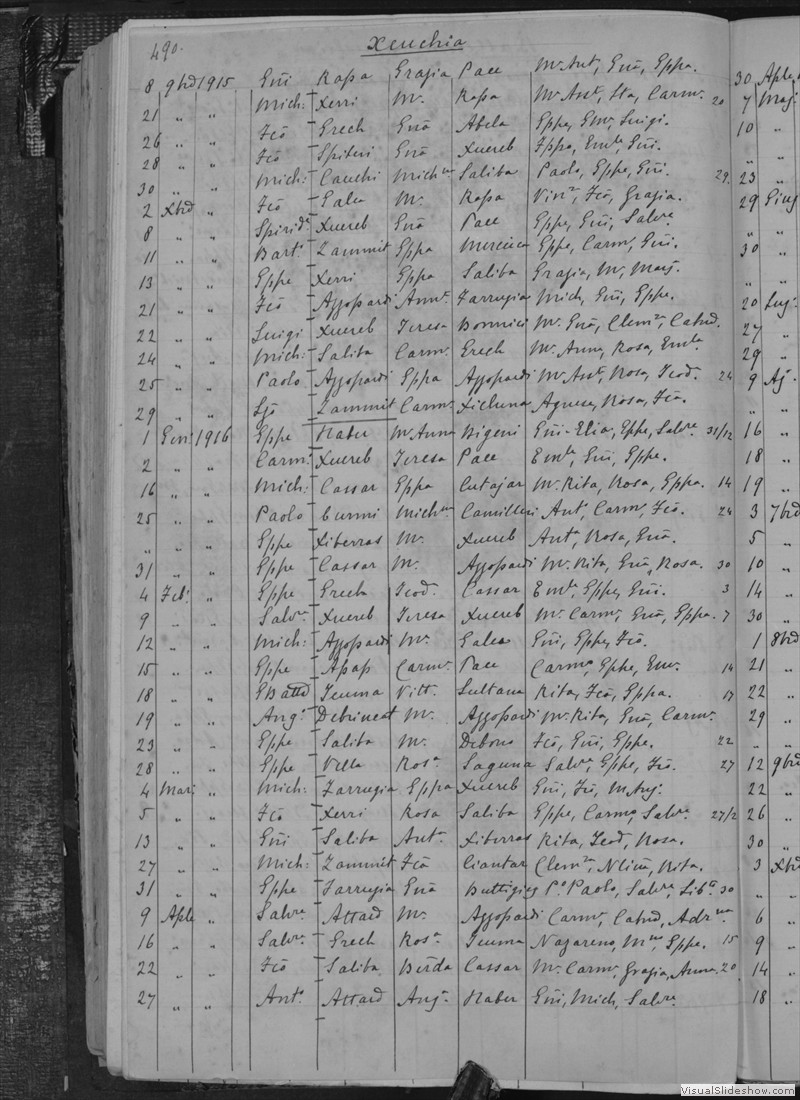 490. Xeuchia
8 9brd 1915 Giũ Rassa Grazia Pace M. Ant, Giũ, Eppa. 30 Aple
21 " " Mich: Xerri M. Rassa M. Asst, Sta, Carm. 20 7 Maj.
26 " " Fcõ Grech Giũa Abela Eppe, Emv, Luigi. 10 "
28 " " Fcõ Spiteri Giũa Xuereb Eppa, Emla Giũ. " "
30 " " Mich: Cauchi Michna Saliba Paolo, Eppe, Giũ. 29. 23 "
2 Xbrd " Fcõ Galea M. Rassa Vinz, Fcõ, Grazia. 29 Giug
8 " " Spirid. Xuereb Giũa Pace Eppe, Giũ, Salvre " "
11 " " Bart. Zammit Eppa Mercieca Eppe, Carm, Giũ. 30 "
13 " " Eppe Xerri Eppa Saliba Grazia, M, Marj. " "
21 " " Fcõ Azzopardi Annt. Farrugia Mich, Giũ, Eppe. 20 Lug.
22 " " Luigi Xuereb Teresa Bonnici M. Giũa, Clemza, Catnd. 27 "
24 " " Mich: Saliba Carm. Grech M. Anna, Rosa, Emla 29 "
25 " " Paolo Azzopardi Eppa Azzopardi M. Asst, Rosa, Teod. 24 9 Aj.
29 " " Zammit Carm. Xicluna Agnese, Rosa, Fcã. " "
1 Gen: 1916 Eppe Naber M. Anna Bigeni Giũ-Elia, Eppe, Salvre 31/12 16 "
2 " " Carm: Xuereb Teresa Pace Emle, Giũ, Eppe. 18 "
16 " " Mich: Cassar Eppa Cutajar M. Rita, Rosa, Eppa. 14 19 "
25 " " Paolo Curmi Michna Camilleri Ant, Carm, Fcõ. 24 3 7brd
" " " Eppe Xiberras M. Xuereb Anta, Rosa, Giũa. 5 "
31 " " Eppe Cassar M. Azzopardi M. Rita, Giũa, Rosa. 30 10 "
4 Feb: " Eppe Grech Teod. Cassar Emla, Eppe, Giũ. 3 14 "
9 " " Salvre Xuereb Teresa Xuereb M. Carm, Giũa, Eppa. 7 30 "
12 " " Mich: Azzopardi M. Galea Giũ, Eppe, Fcõ. 1 8brd
15 " " Eppe Apap Carm. Pace Carma, Eppe, Emv. 14 21 "
18 " " GBatta Teuma Vitt. Sultana Rita, Fcõ, Eppa. 17 22 "
19 " " Ang. Debrincat M. Azzopardi M. Rita, Giũa, Carm. 29 "
23 " " Eppe Saliba M. Debono Fcõ, Giũ, Eppe. 22 " "
28 " " Eppe Vella Rosa Laguna Salvre, Eppe, Fcõ. 27 12 9brd
4 Mar: " Mich: Farrugia Eppa Xuereb Giũ, Fcõ, M. Anj. 22 "
5 " " Fcõ Xerri Rosa Saliba Eppe, Carmo, Salvre. 27/2 26 "
13 " " Giũ Saliba Ant. Xiberras Rita, Teod, Rosa. 30 "
27 " " Mich: Zammit Fcã Ciantar Clemza, Rita. 3 Xbrd
31 " " Eppe Farrugia Giũa Buttigieg Po Paolo, Salvre, Liba 30 " "
9 Aple " Salvre Attard M. Azzopardi Carm, Catnd, Adrna. 6 "
16 " " Salvre Grech Rosa Teuma Nazareno, Mna, Eppe. 15 9 "
22 " " Fcõ Saliba Berda Cassar M. Carm, Grazia, Anna. 20 14 "
27 " " Ant. Attard Anj. Naber Giũ, Mich, Salvre 18 "
VisualSlideshow.com